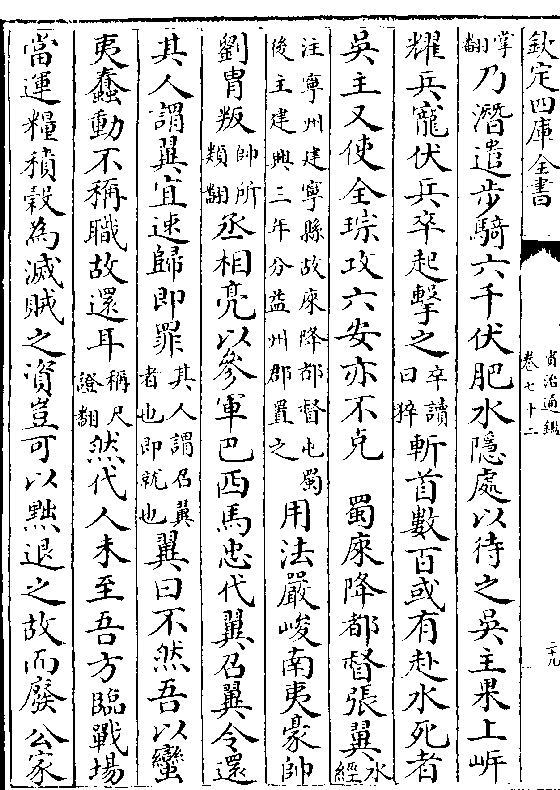 欽定四庫全書
資治通鑑
卷七十二
掌翻乃潛遣步騎六千伏肥水隱處以待之吳主果上岸
耀兵寵伏兵卒起擊之卒讀曰猝斬首數百或有赴水死者
吳主又使全琮攻六安亦不克　蜀庲降都督張翼水經
注寧州建寧縣故庲降都督屯蜀後主建興三年分益州郡置之用法嚴峻南夷豪帥
劉胄叛帥所類翻丞相亮以參軍巴西馬忠代翼召翼令還
其人謂翼宜速歸即罪其人謂召翼者也即就也翼曰不然吾以蠻
夷蠢動不稱職故還耳稱尺證翻然代人未至吾方臨戰場
當運糧積穀為滅賊之資豈可以黜退之故而廢公家